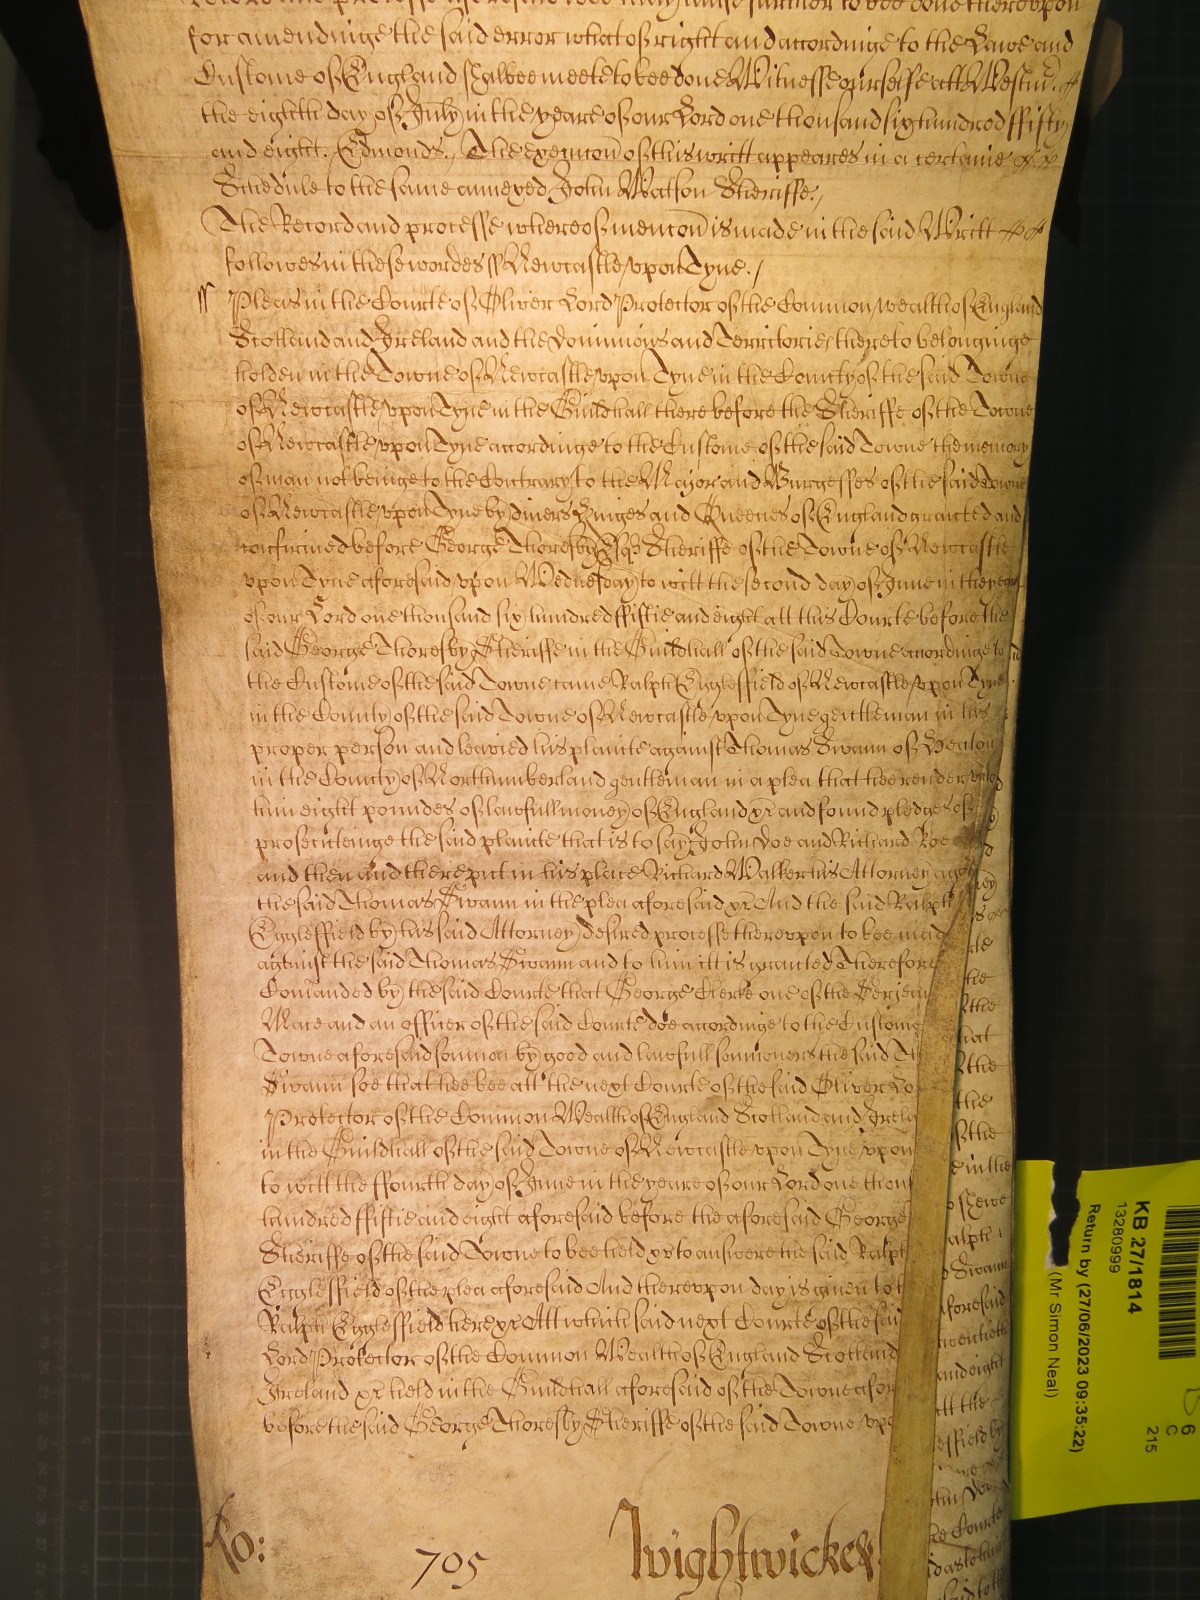 for amendinge the said error what of right and accordinge to the Lawe and
Custome of England shalbee meete to bee done Wittnesse ourselfe att Westm̄.
the eighth day of July in the yeare of our Lord one thousand six hundred ffifty
and eight. Edmonds., The execucon̄ of this writt appeares in a certaine
Schedule to the same annexed John Watson Sheriffe.,
The Record and processe whereof mencon̄ is made in the said Writt
followes in these wordes ss Newcastle upon Tyne./
ss Pleas in the Courte of Oliver Lord Protector of the Common wealth of England
Scotland and Ireland and the Dominions and Territories thereto belonginge
holden in the Towne of Newcastle upon Tyne in the County of the said Towne
of Newcastle upon Tyne in the Guildhall there before the Sheriffe of the Towne
of Newcastle upon Tyne accordinge to the Custome of the said Towne the memory
of man not beinge to the Contrary to the Mayor and Burgesses of the said Towne
of Newcastle upon Tyne by divers Kinges and Queenes of England graunted and
confirmed before George Thoresby Esq̄ Sheriffe of the Towne of Newcastle
upon Tyne aforesaid upon Wednesday to witt the second day of June in the yeare
of our Lord one thousand six hundred ffiftie and eight att this Courte before the
said George Thoresby Sheriffe in the Guildhall of the said Towne accordinge to
the Custome of the said Towne came Ralph Egglesfield of Newcastle upon Tyne
in the County of the said Towne of Newcastle upon Tyne gentleman in his
proper person and leavied his plainte against Thomas Swann of Heaton
in the County of Northumberland gentleman in a plea that hee render unto
him eight poundes of lawfull money of England &c̄ and found pledges of
prosecuteinge the said plainte that is to say John Doe and Richard Roe
and then and there put in his place Richard Walker his Attorney
the said Thomas Swann in the plea aforesaid &c̄ And the said Ralph
Egglesfield by his said Attorney desired processe thereupon to bee made
against the said Thomas Swann and to him itt is granted Therefore
Com̄anded by the said Courte that George Clerke one of the Serjean
Mace and an officer of the said Courte doe accordinge to the Custome
Towne aforesaid som̄on by good and lawfull som̄oners the said Th
Swann soe that hee bee att the next Courte of the said Oliver Lo
Protector of the Common Wealth of England Scotland and Irela
in the Guildhall of the said Towne of Newcastle upon Tyne upon
to witt the ffourth day of June in the yeare of our Lord one thous
hundred ffiftie and eight aforesaid before the aforesaid George
Sheriffe of the said Towne to bee held &c̄ to answere the said Ralph
Egglesfield of the plea aforesaid And thereupon day is given to t
Ralph Egglesfield here &c̄ Att which said next Courte of the said
Lord Protector of the Common Wealth of England Scotland
Ireland &c̄ held in the Guildhall aforesaid of the Towne afor
before the said George Thoresby Sheriffe of the said Towne upo
Ro:
705
Wightwicke
KB 27/1814
13280999
Return by (27/06/2023 09:35:22)
(Mr Simon Neal)
6
C
215